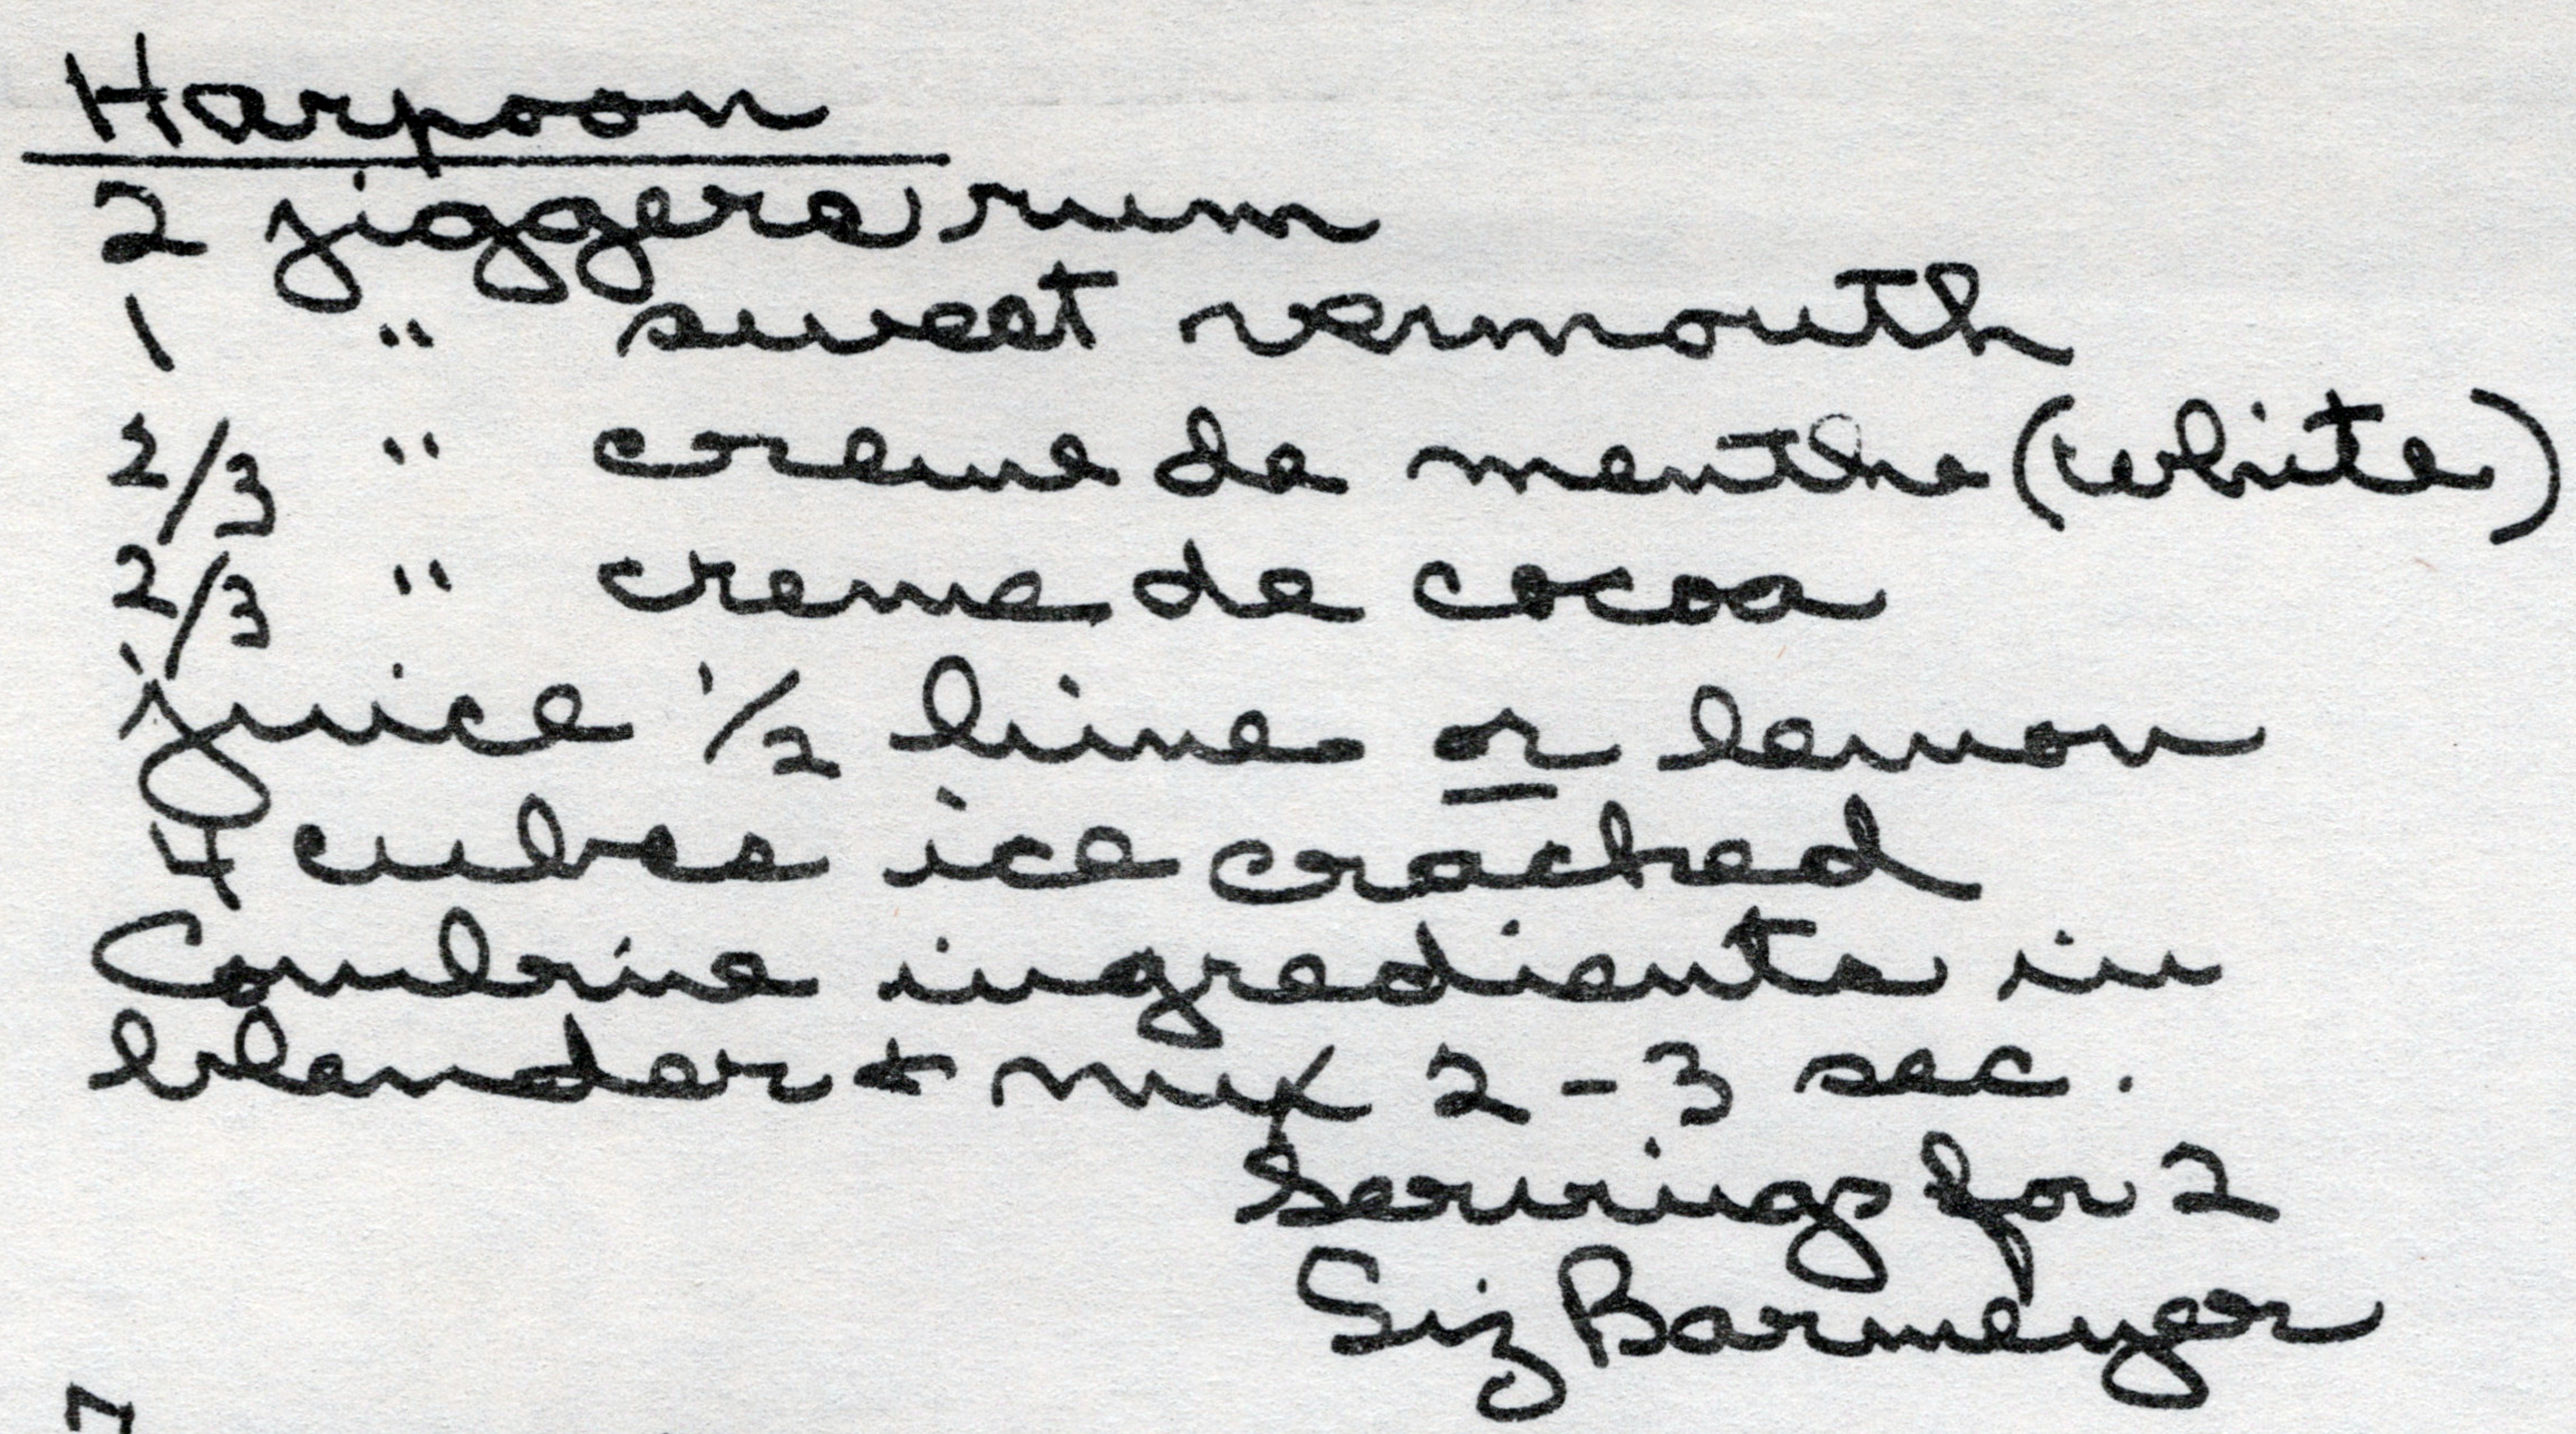 Harpoon
2 jiggers rum
1 " sweet vermouth
2/3 " creme de menthe (white)
2/3 " creme de cocoa
juice 1/2 lime or lemon
4 cubes ice cracked
Combine ingredients in
blender + mix 2-3 sec.
Servings for 2
Siz Barmeyer